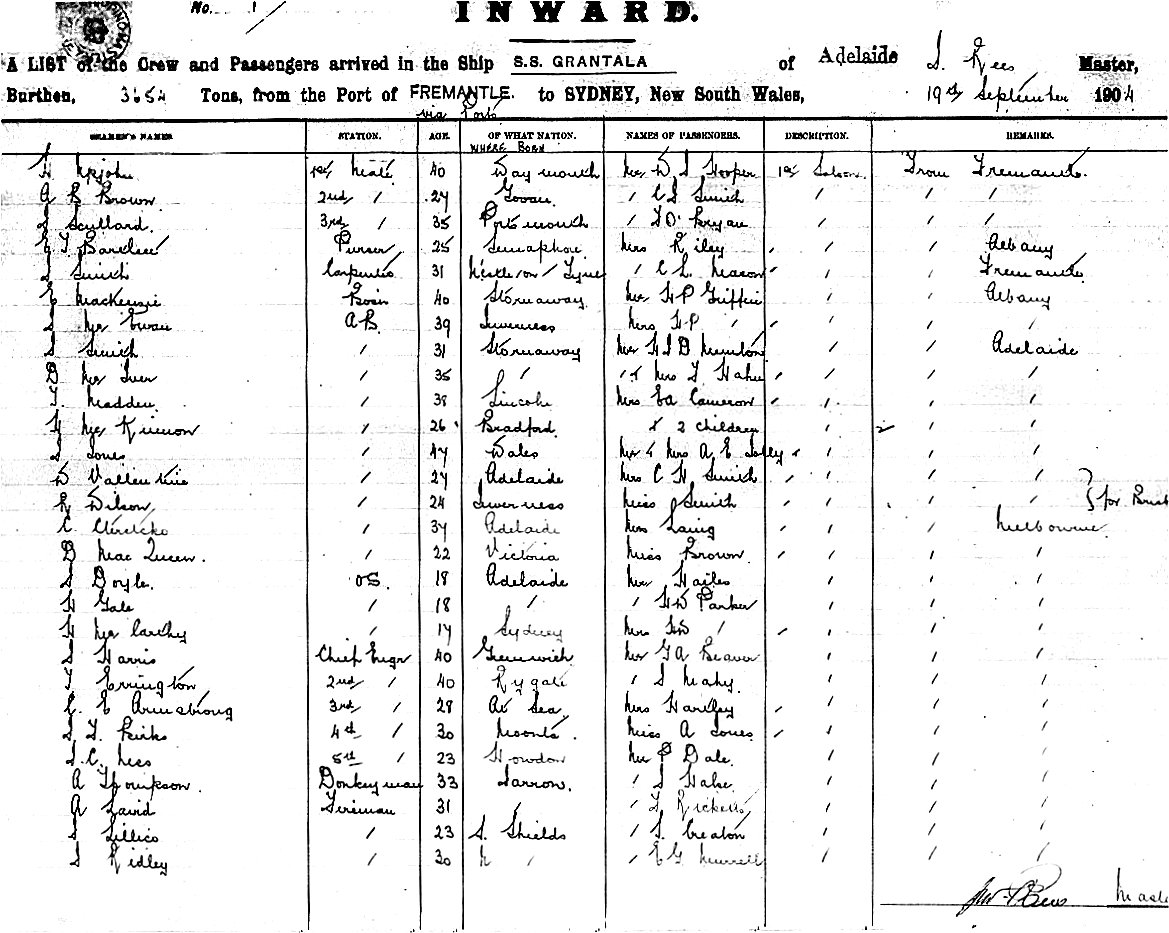 No. 1
INWARD.
A LIST of the Crew and Passengers arrived in the Ship S.S. GRANTALA of Adelaide J. Rees Master,
Burthen, 3654 Tons, from the Port of FREMANTLE. to SYDNEY, New South Wales, 19th September 1904
via Ports
SEAMEN'S NAMES STATION. AGE. OF WHAT NATION. NAMES OF PASSENGERS. DESCRIPTION. REMARKS.
WHERE BORN
H Upjohn 1st Mate 40 Waymouth Mr W J Hooper 1st Saloon From Fremantle.
A B Brown 2nd " 27 Govan " C J Smith " " "
J Scullard 3rd " 35 Portsmouth " J O'Bryan " " "
Purser 25 Semaphore Mrs Riley " " " Albany
J Smith Carpenter 31 " C L Mason " " " Fremantle
E Mackenzie Bosn 40 Stornaway Mr H P Griffin " " Albany
J Mc Ewan A.B. 39 Inverness Mrs H P " " " " "
J Smith " 31 Stornaway " " Adelaide
D Mc Iver " 35 " " & Mrs J Hahn " " " "
J. Madden " 38 Lincoln Mrs Ea Cameron " " " "
H Mc Kinnon " 26 Bradford & 2 children " 2 " "
J Jones " 47 Wales Mr & Mrs A E Jolly " " " "
W Vallentine " 27 Adelaide Mrs C H Smith " " " "
R Wilson " 24 Inverness Miss Smith " " " " } for Brisb
C. 37 Adelaide Mrs Laing " " " Melbourne
D Mac Queen. " 22 Victoria Miss Brown. " " " "
J Doyle. OS. 18 Adelaide Mr Hailes " " "
H Gale " 18 " " H W Parker " " "
H Mc Carthy " 17 Sydney Mrs HW " " " " "
J Harris Chief Engr 40 Greenwich Mr G A Beaver " " "
J Errington 2nd " 40 Rygate " J Mahy. " " "
C. E Armstrong 3rd " 28 At Sea. Mrs Hartley " " " "
J. T. Kirks 4th " 30 Moonta. Miss A Jones " " " "
J. C. Ness 5th " 23 Howdon Mr P Dale. " " "
A Thompson. Donkeyman 33 Jarrow. " J Hahn. " " "
A David Fireman 31 " " J Ricketts " " "
J Lillico " 23 S. Shields " J. Creaton " " "
J Ridley " 30 N " " E G Murrell " " "
Jno J Rees Maste